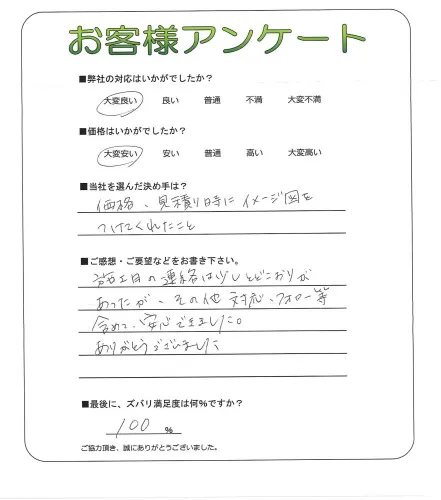 お客様アンケート
■弊社の対応はいかがでしたか？
大変良い 良い 普通 不満 大変不満
■価格はいかがでしたか？
大変安い 安い 普通 高い 大変高い
■当社を選んだ決め手は？
価格、見積り時にイメージ図を
つけてくれたこと
■ご感想・ご要望などをお書き下さい。
の連絡は少しとどこおりが
あったが、その他 対応、フォロー等
含めて、安心できました。
ありがとうございました
■最後に、ズバリ満足度は何％ですか？
100 %
ご協力頂き、誠にありがとうございました。